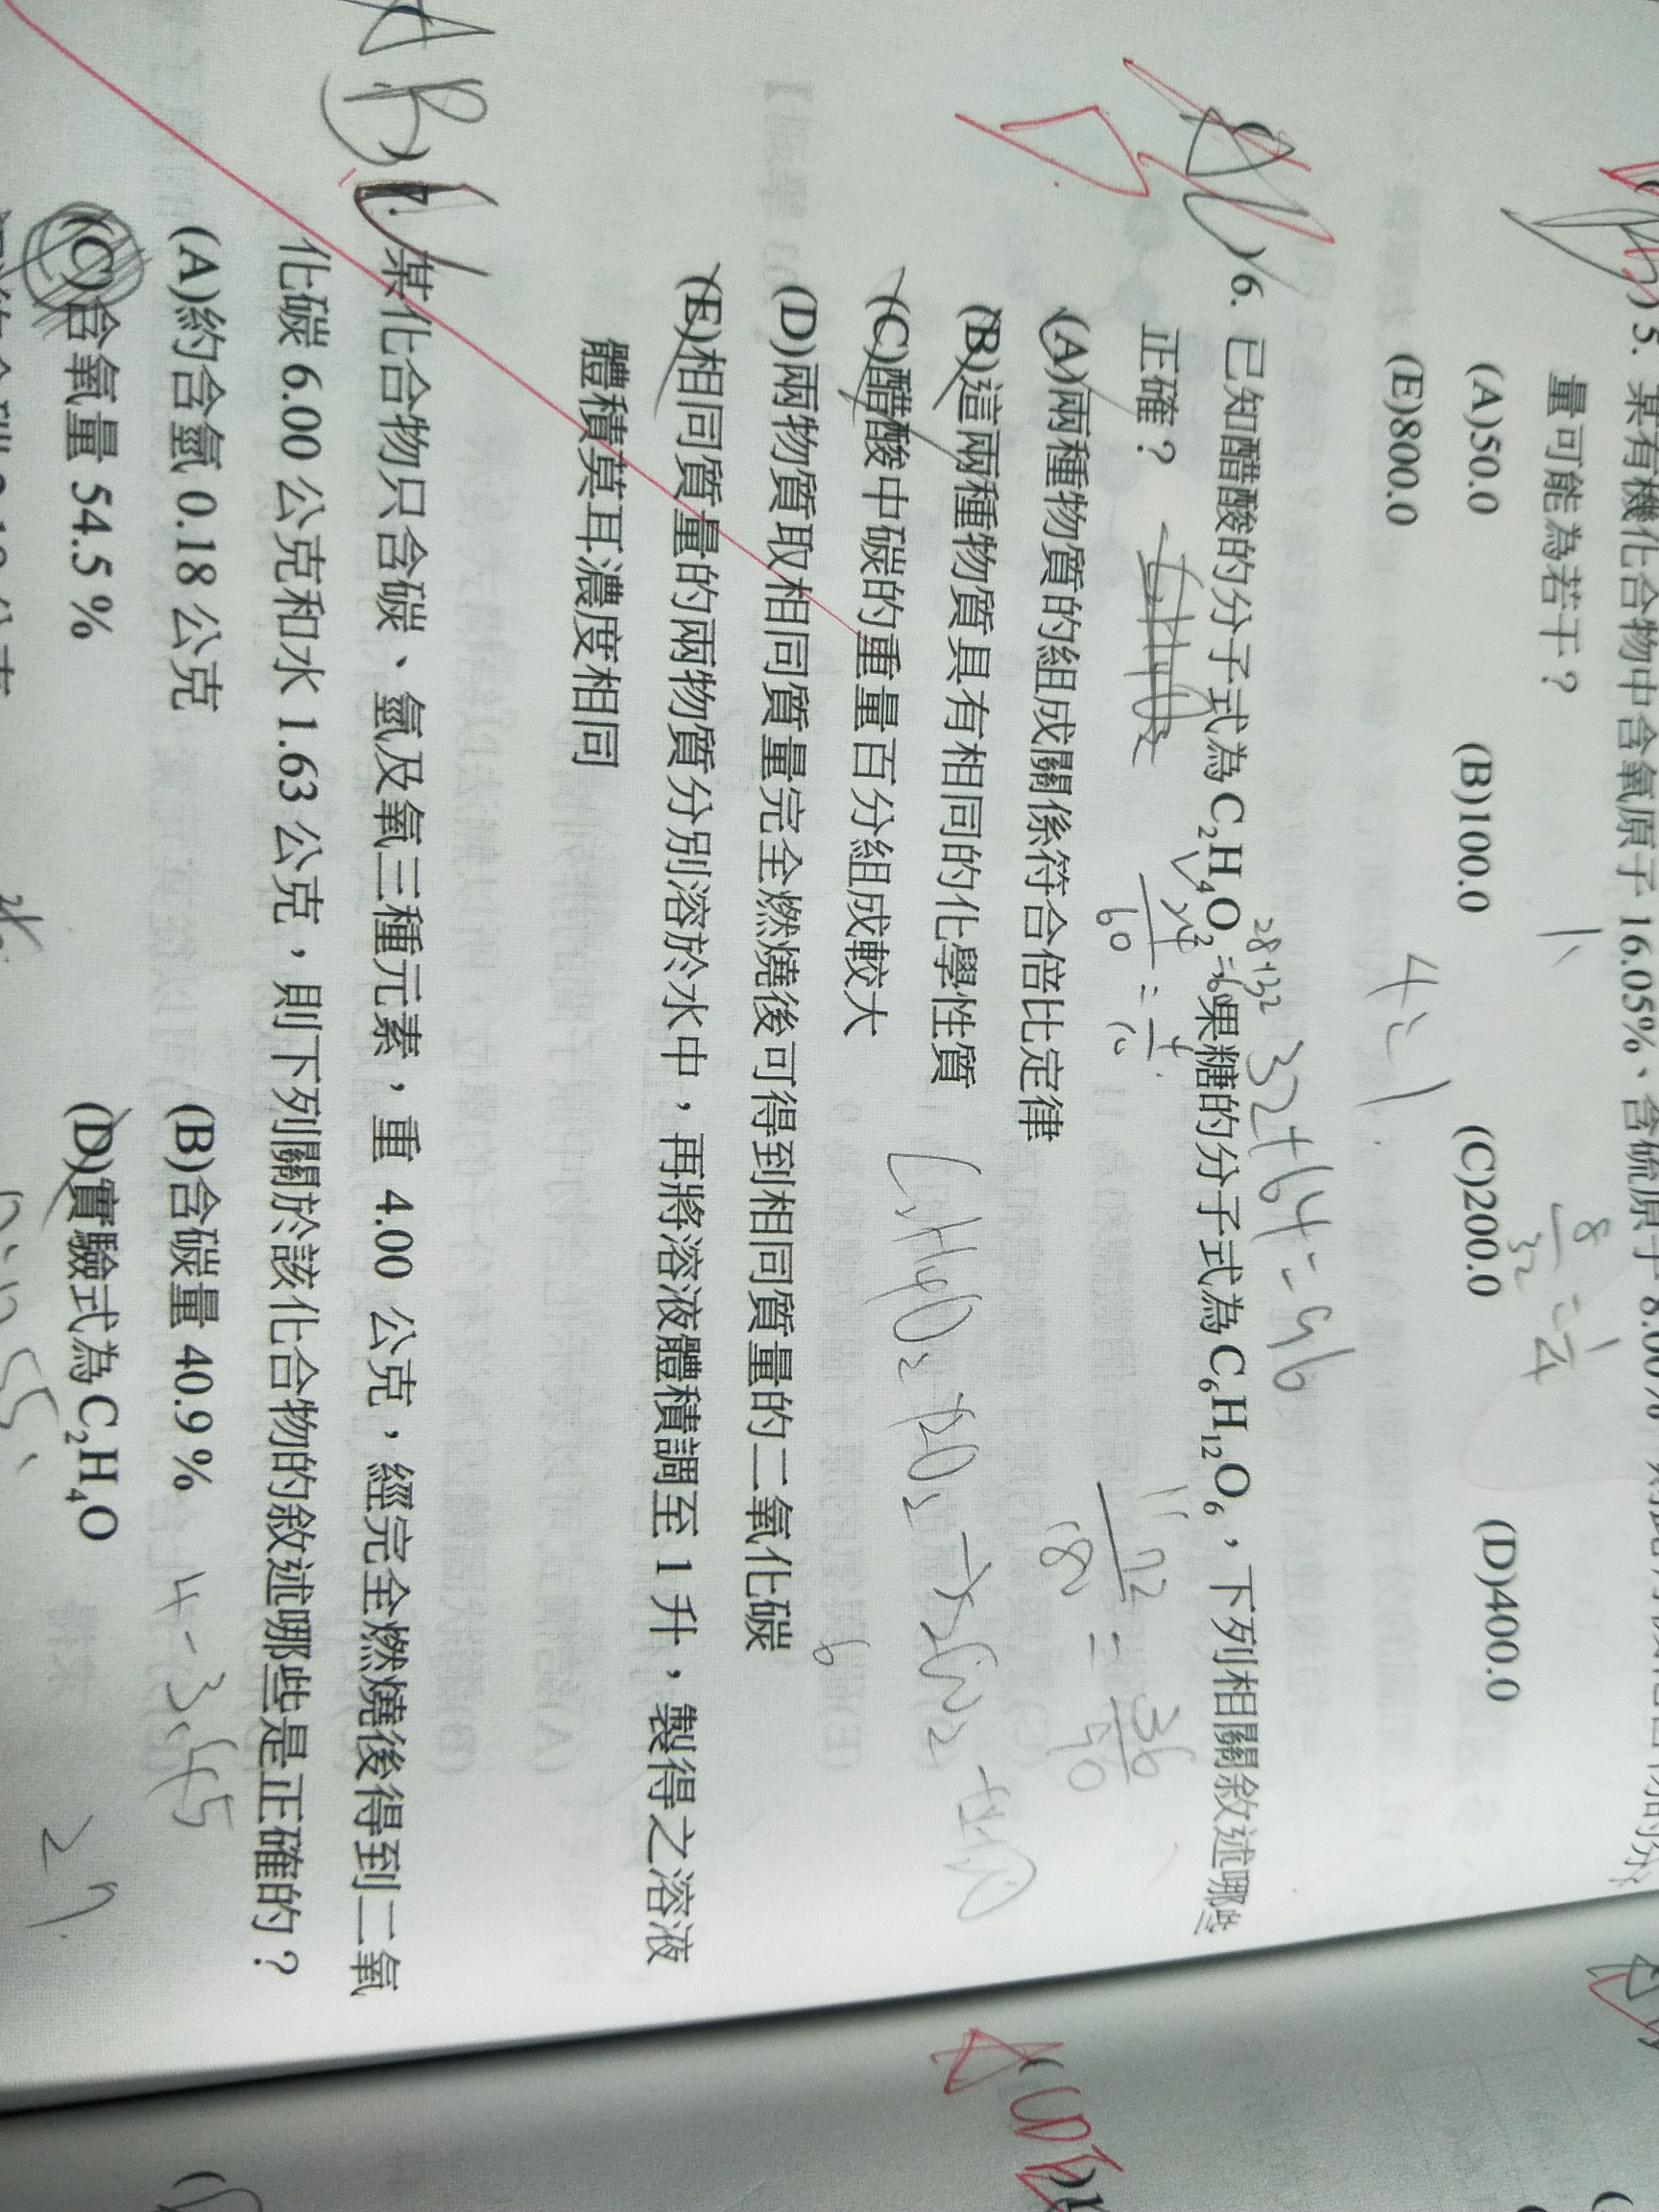 5. 某有機化合物中含氧原子 16.05%、含硫原子 8.00%
量可能為若干？
(A)50.0 (B)100.0 (C)200.0 (D)400.0
(E)800.0
4:1
8/32 = 1/4
32+64=96
28+32
6. 已知醋酸的分子式為 C₂H₄O₂，果糖的分子式為 C₆H₁₂O₆，下列相關敘述哪些
正確？
24/60 =
72/180 = 36/90
(A)兩種物質的組成關係符合倍比定律
(B)這兩種物質具有相同的化學性質
(C)醋酸中碳的重量百分組成較大
C₂H₄O₂+2O₂→2CO₂+2H₂O
(D)兩物質取相同質量完全燃燒後可得到相同質量的二氧化碳
(E)相同質量的兩物質分別溶於水中，再將溶液體積調至 1 升，製得之溶液
體積莫耳濃度相同
AB
7. 某化合物只含碳、氫及氧三種元素，重 4.00 公克，經完全燃燒後得到二氧
化碳 6.00 公克和水 1.63 公克，則下列關於該化合物的敘述哪些是正確的？
(A)約含氫 0.18 公克 (B)含碳量 40.9 %
4-3.45
(C)含氧量 54.5 % (D)實驗式為 C₂H₄O